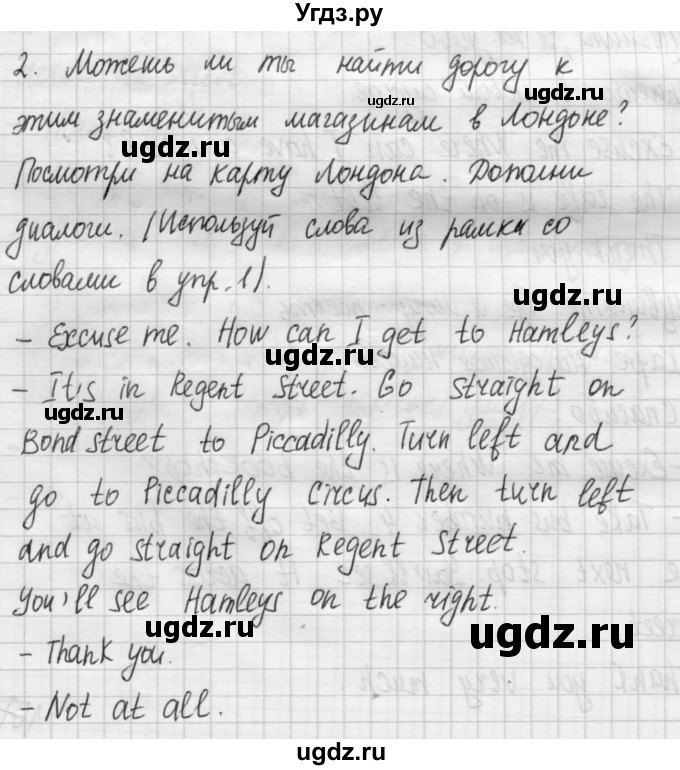 Угдз.ру
2. Можешь ли ты найти дорогу к
ugdz.ru
этим знаменитым магазинам в Лондоне?
ugdz.ru ugdz.ru
Посмотри на карту Лондона. Дополни
диалоги. (Используй слова из рамки со
словами в упр. 1).
ugdz.ru
- Excuse me. How can I get to Hamleys?
ugdz.ru
- It's in Regent Street. Go straight on
ugdz.ru
Bond street to Piccadilly. Turn left and
go to Piccadilly Circus. Then turn left
and go straight on Regent Street.
You'll see Hamleys on the right.
ugdz.ru ugdz.ru
- Thank you.
- Not at all.
ugdz.ru